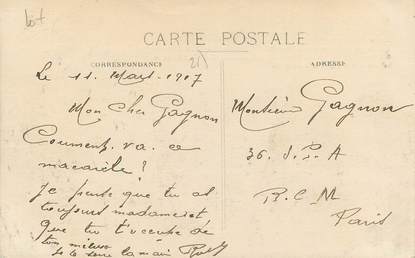 Lot
CARTE POSTALE
CORRESPONDANCE
ADRESSE
Le 11 Mars 1907
Mon cher Gagnon
Comment va ce
macarele ?
Je pense que tu as
toujours
que tu de
ton mieux
Je te serre la main
Monsieur Gagnon
36. S. P. A
R. C M
Paris